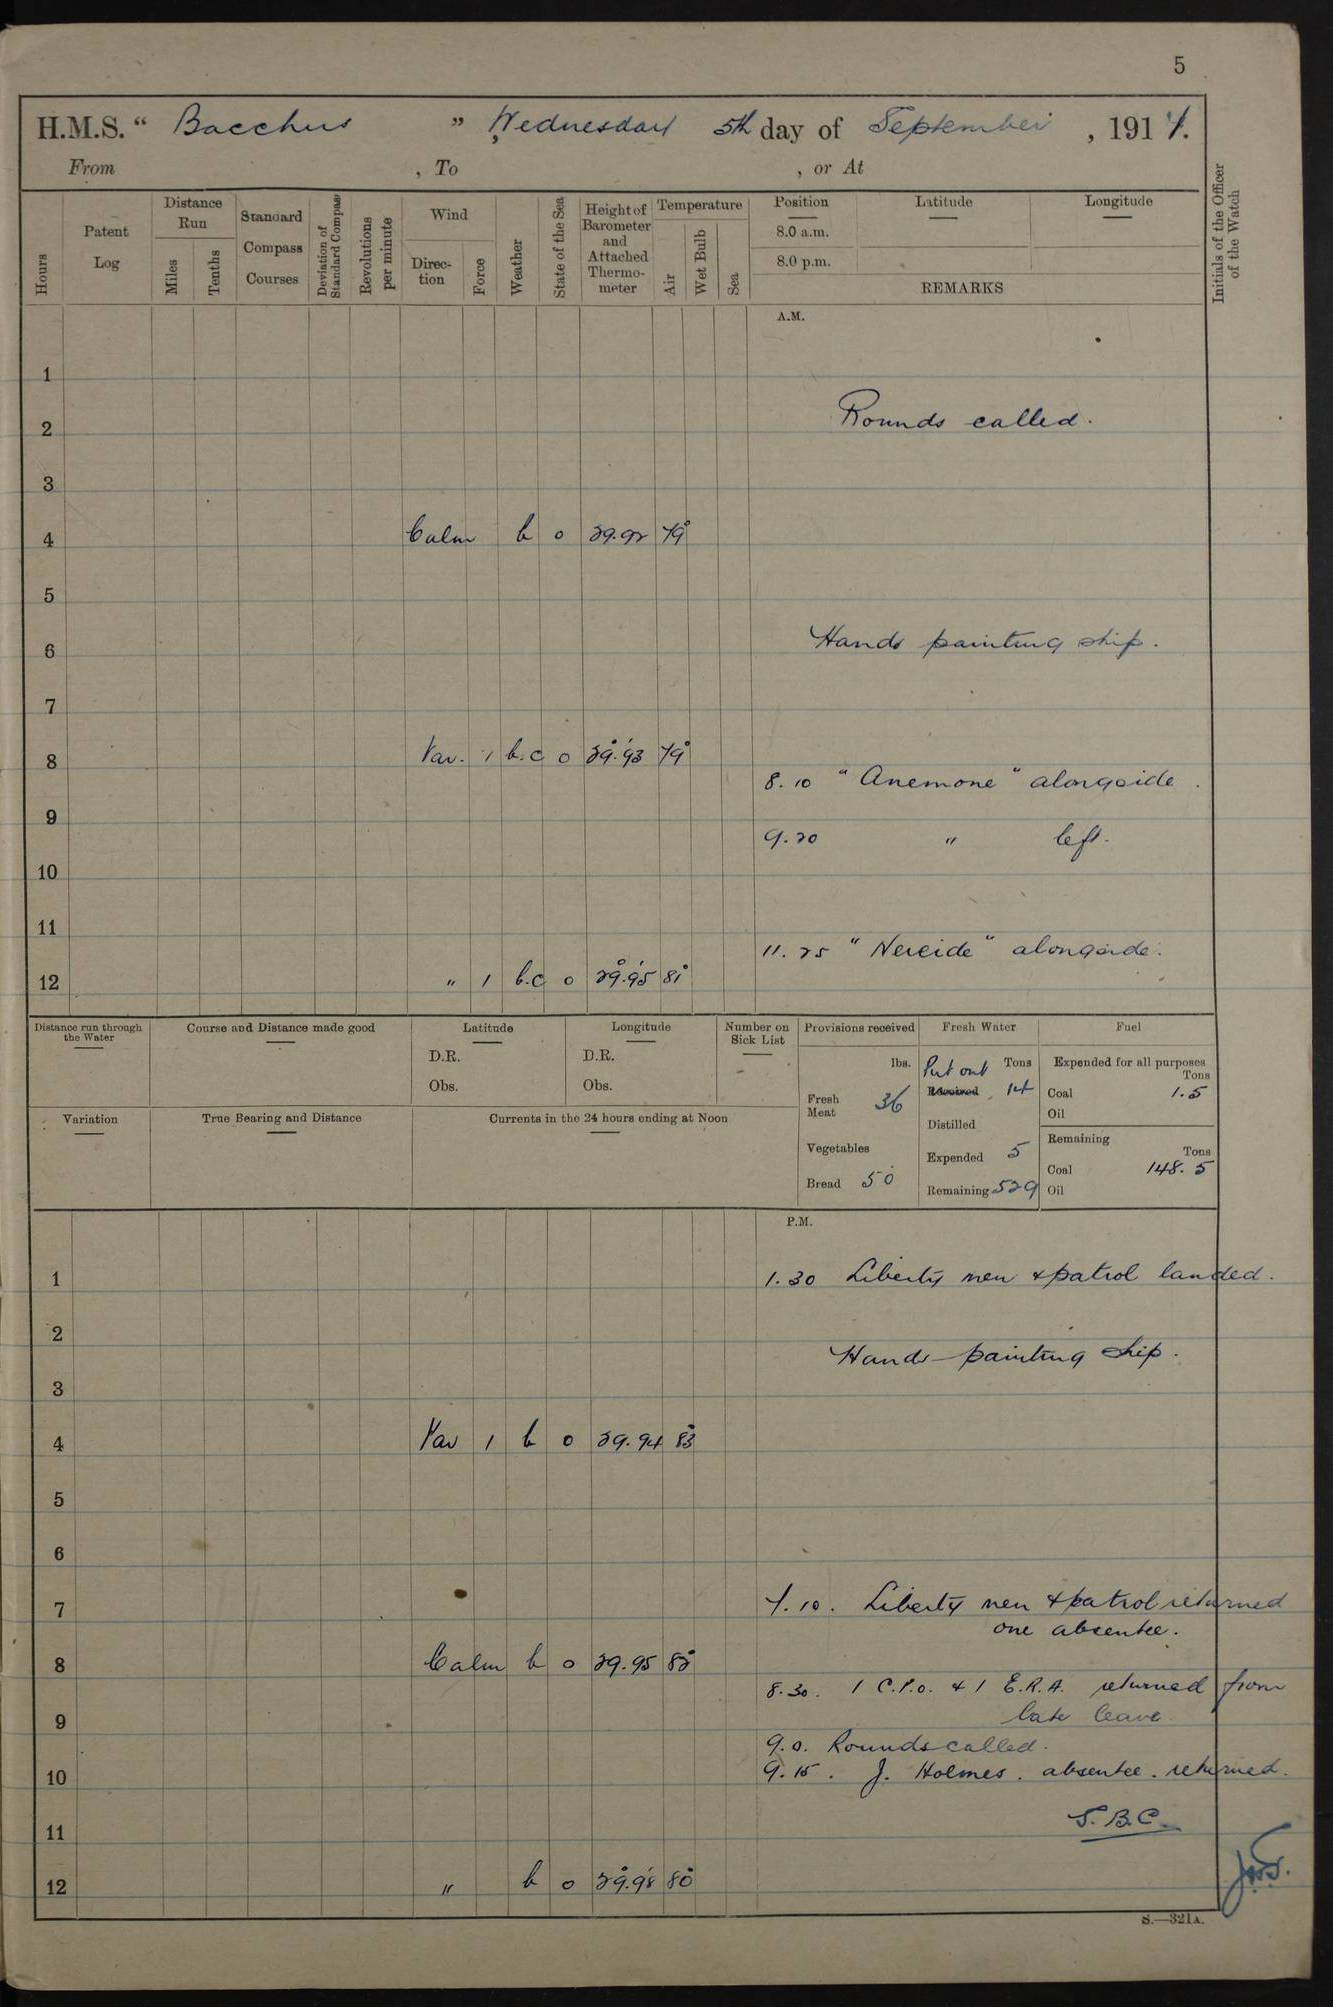 5
H.M.S. “ Bacchus ” Wednesday 5th day of September , 1917.
From , To , or At
Initials of the Officer of the Watch
Hours
Patent Log
Distance Run
Miles
Tenths
Standard Compass Courses
Deviation of Standard Compass
Revolutions per minute
Wind
Direction
Force
Weather
State of the Sea
Height of Barometer and Attached Thermometer
Temperature
Air
Wet Bulb
Sea
Position Latitude Longitude
8.0 a.m.
8.0 p.m.
REMARKS
A.M.
1
2 Rounds called.
3
4 Calm b 0 29.92 79°
5
6 Hands painting ship.
7
8 Var. 1 b.c 0 29°.93 79°
8.10 "Anemone" alongside.
9
9.20 " left.
10
11
11.25 "Nereide" alongside.
12 " 1 b.c 0 29°.95 81°
Distance run through the Water
Course and Distance made good
Latitude
D.R.
Obs.
Longitude
D.R.
Obs.
Number on Sick List
-
Provisions received
lbs.
Fresh Meat 36
Vegetables
Bread 50
Fresh Water
Put out Tons
Received 14
Distilled
Expended 5
Remaining 529
Fuel
Expended for all purposes
Tons
Coal 1.5
Oil
Remaining
Tons
Coal 148.5
Oil
Variation
True Bearing and Distance
Currents in the 24 hours ending at Noon
P.M.
1 1.30 Liberty men & patrol landed.
2
Hands painting ship.
3
4 Var 1 b 0 29.94 83°
5
6
7 7.10. Liberty men & patrol returned
one absentee.
8 Calm b 0 29.95 82°
8.30. 1 C.P.O. & 1 E.R.A. returned from
late leave
9
9.0. Rounds called.
10 9.15. J. Holmes. absentee. returned.
S.B.C.
11
12 " b 0 29°.98 80°
S.—321A.